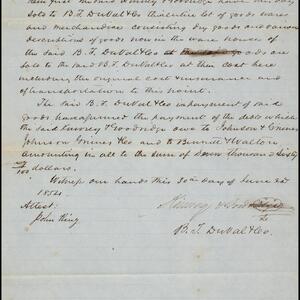 have this day
sold to B. T. DuVal & Co their entire lot of goods wares
and merchandise consisting dry goods and various
descriptions of goods now in the ware house of
the said B. T. DuVal & Co goods are
sold to the said B. T. DuVal & Co at their cost here
including the original cost & insurance and
of transportation to this point.
The said B. T. DuVal & Co in payment of said
goods have assumed the payment of the debts which
the said & Woodridge owe to Johnson &
Johnson Grimes & Co and to Bennett & Walton
amounting in all to the sum of Seven thousand Sixty
/100 dollars.
Witness our hands this 30th day of June AD
1852.
Attest:
John King
B. T. DuVal & Co.